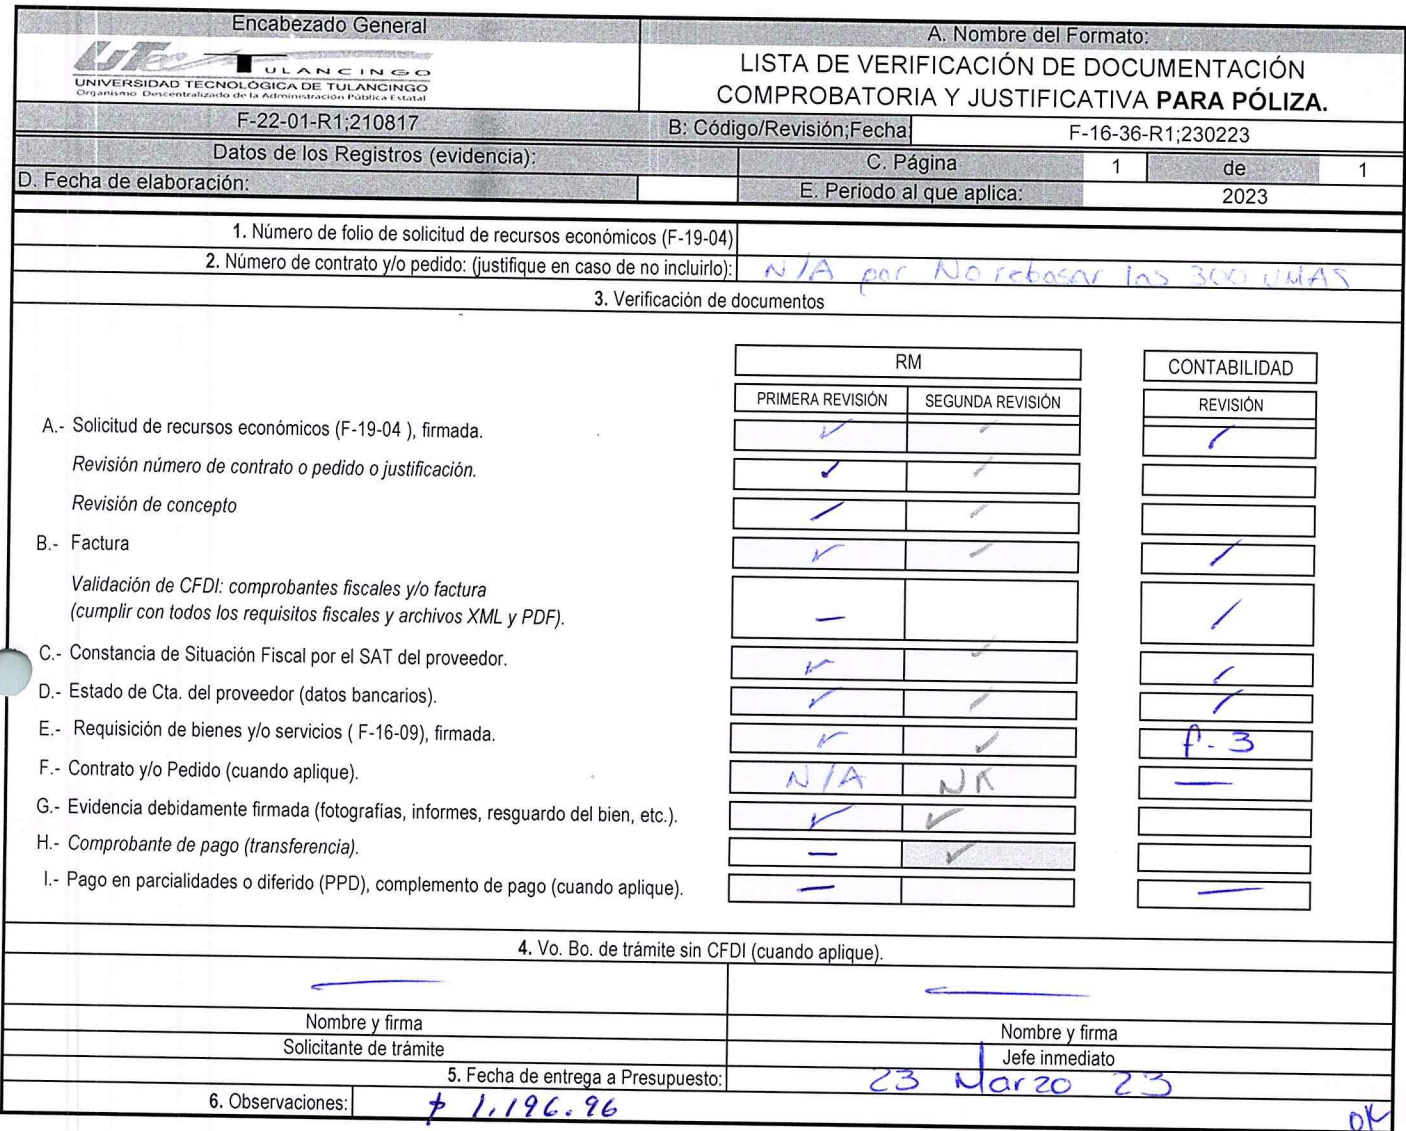 Encabezado General
A. Nombre del Formato:
UTec TULANCINGO
UNIVERSIDAD TECNOLÓGICA DE TULANCINGO
Organismo Descentralizado de la Administración Pública Estatal
LISTA DE VERIFICACIÓN DE DOCUMENTACIÓN
COMPROBATORIA Y JUSTIFICATIVA PARA PÓLIZA.
F-22-01-R1;210817 B: Código/Revisión;Fecha F-16-36-R1;230223
Datos de los Registros (evidencia): C. Página 1 de 1
D. Fecha de elaboración: E. Periodo al que aplica: 2023
1. Número de folio de solicitud de recursos económicos (F-19-04)
2. Número de contrato y/o pedido: (justifique en caso de no incluirlo): N/A por No rebasar las 300 UMAS
3. Verificación de documentos
RM CONTABILIDAD
PRIMERA REVISIÓN SEGUNDA REVISIÓN REVISIÓN
A.- Solicitud de recursos económicos (F-19-04 ), firmada. ✓ ✓ ✓
Revisión número de contrato o pedido o justificación. ✓ ✓
Revisión de concepto ✓ ✓
B.- Factura ✓ ✓ ✓
Validación de CFDI: comprobantes fiscales y/o factura
(cumplir con todos los requisitos fiscales y archivos XML y PDF). — ✓
C.- Constancia de Situación Fiscal por el SAT del proveedor. ✓ ✓ ✓
D.- Estado de Cta. del proveedor (datos bancarios). ✓ ✓ ✓
E.- Requisición de bienes y/o servicios ( F-16-09), firmada. ✓ ✓ f-3
F.- Contrato y/o Pedido (cuando aplique). N/A —
G.- Evidencia debidamente firmada (fotografías, informes, resguardo del bien, etc.). ✓ ✓
H.- Comprobante de pago (transferencia). — ✓
I.- Pago en parcialidades o diferido (PPD), complemento de pago (cuando aplique). — —
4. Vo. Bo. de trámite sin CFDI (cuando aplique).
— —
Nombre y firma Nombre y firma
Solicitante de trámite Jefe inmediato
5. Fecha de entrega a Presupuesto: 23 Marzo 23
6. Observaciones: $ 1,196.96 OK